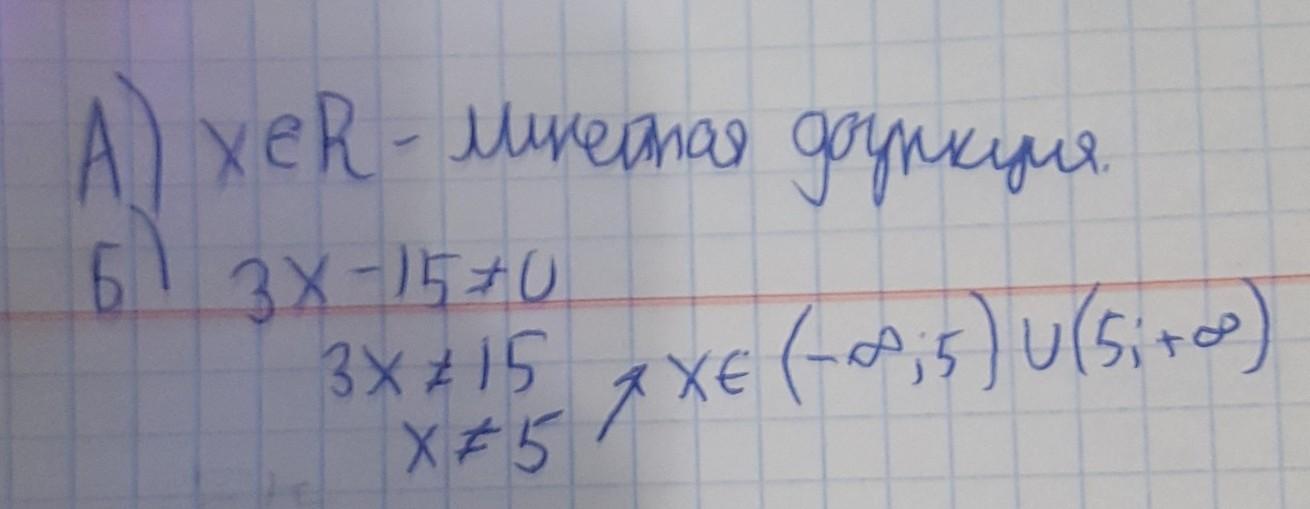 А) x∈R - линейная функция.
Б) 3x-15≠0
3x≠15
x≠5 ↗ x∈(-∞;5)∪(5;+∞)